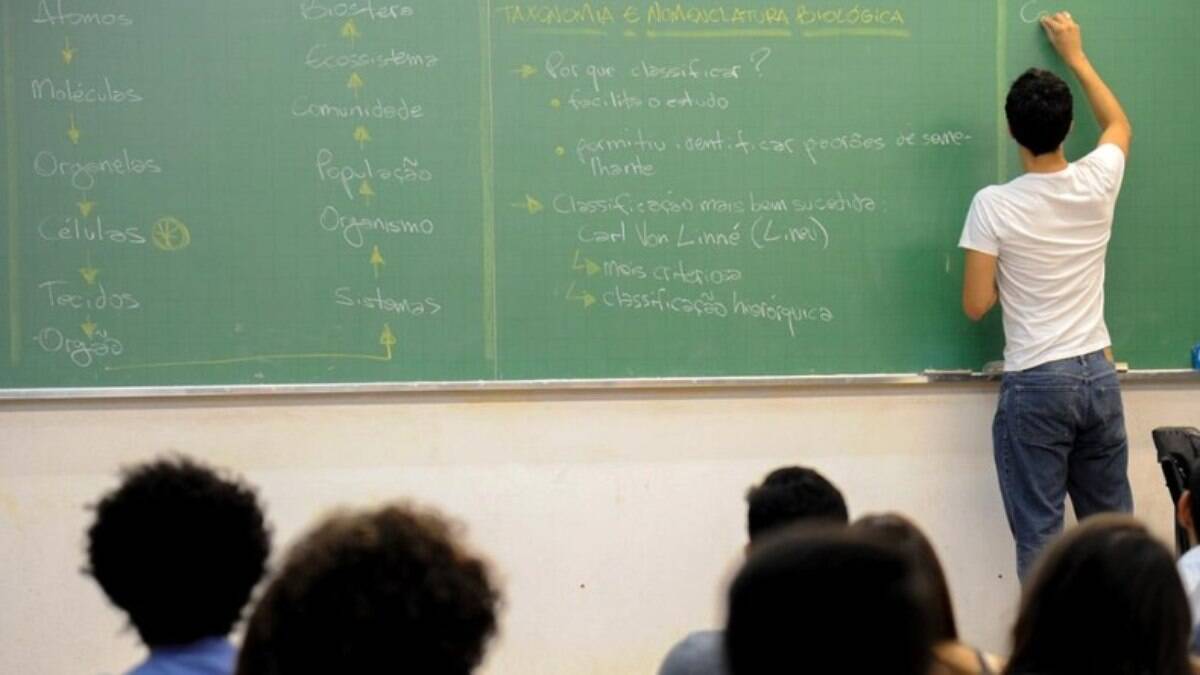 Átomos
Moléculas
Organelas
Células
Tecidos
Órgão
Biosfera
Ecossistema
Comunidade
População
Organismo
Sistemas
TAXONOMIA E NOMENCLATURA BIOLÓGICA
Por que classificar?
facilita o estudo
permitiu identificar padrões de seme-
lhante
Classificação mais bem sucedida:
Carl Von Linné (Lineu)
mais criteriosa
classificação hierárquica
C